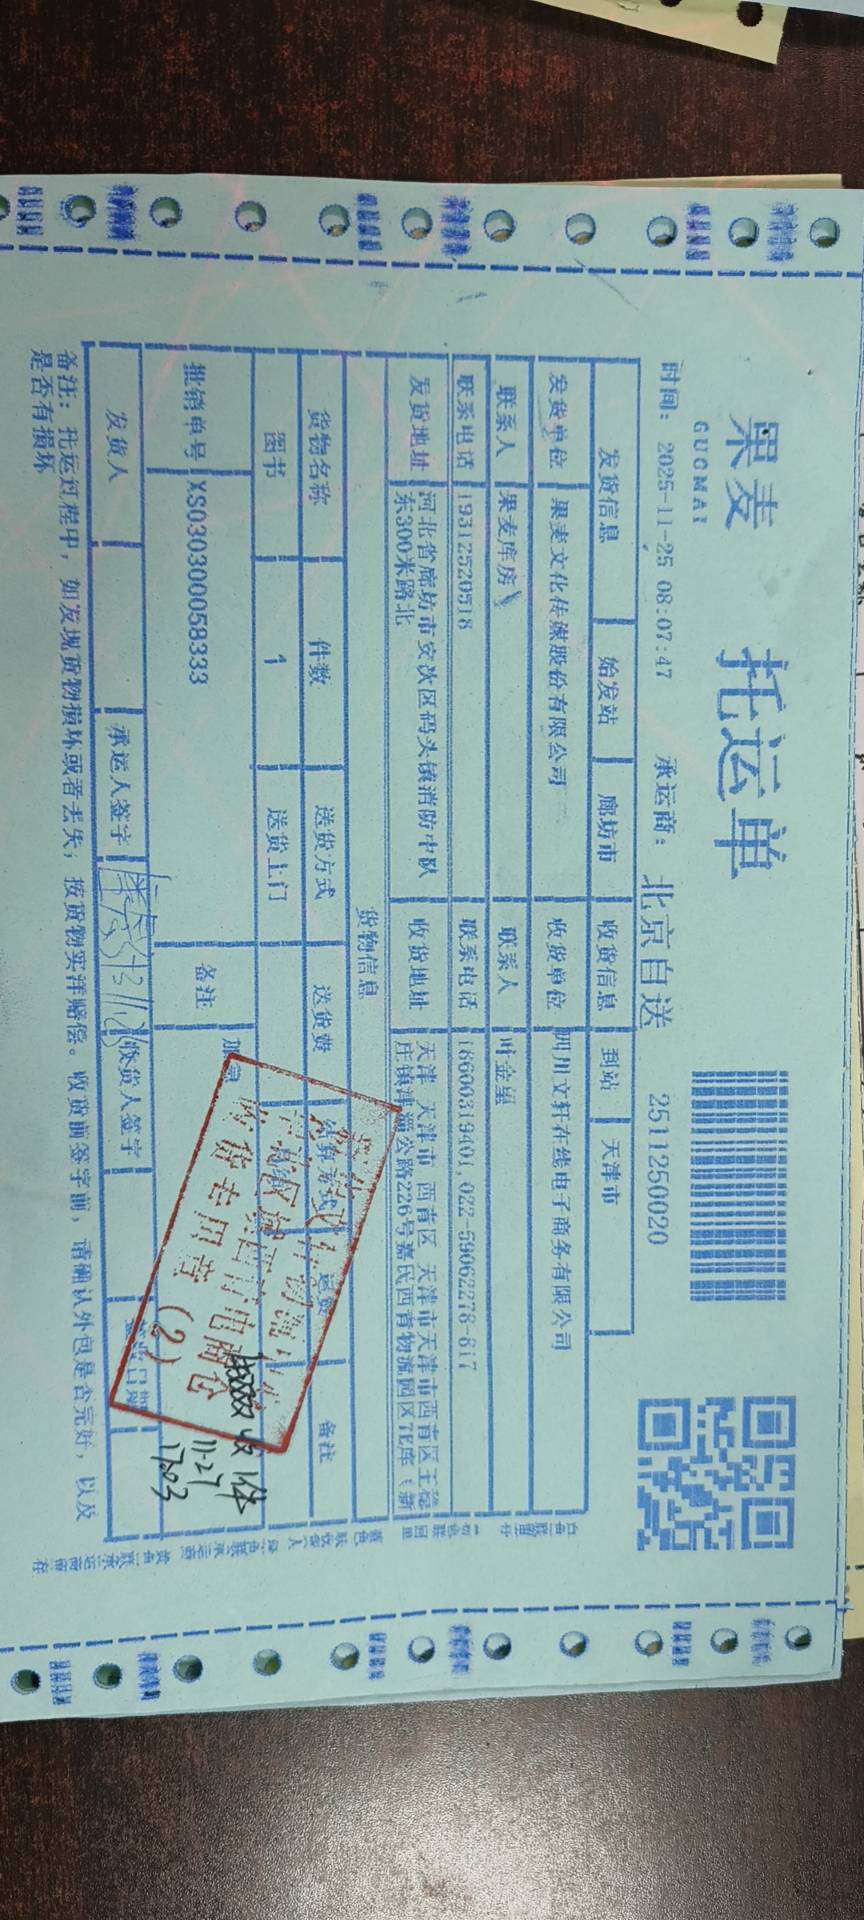 果麦
GUOMAI
托运单
时间: 2025-11-25 08:07:47 承运商: 北京自送 2511250020
发货信息 始发站 廊坊市 收货信息 到站 天津市
发货单位 果麦文化传媒股份有限公司 收货单位 四川文轩在线电子商务有限公司
联系人 果麦库房 联系人 叶金星
联系电话 19312520518 联系电话 18600319401,022-59062278-617
发货地址 河北省廊坊市安次区码头镇消防中队东300米路北 收货地址 天津 天津市 西青区 天津市天津市西青区王稳庄镇津淄公路226号嘉民西青物流园区7E库(新
货物信息
货物名称 件数 送货方式 送货费 结算方式 运费 备注
图书 1 送货上门
批销单号 XS030300058333 备注 加急
收货专用章
(2)
收 1件
11-27
17:03
发货人 承运人签字 收货人签字 签收日期
备注: 托运过程中, 如发现货物损坏或者丢失, 按货物实洋赔偿。收货前签字前, 请确认外包是否完好, 以及
是否有损坏